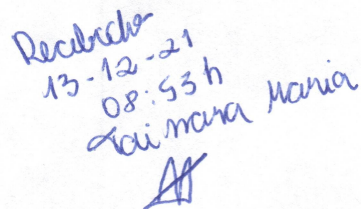 Recebido
13-12-21
08:53h
Taimara Maria